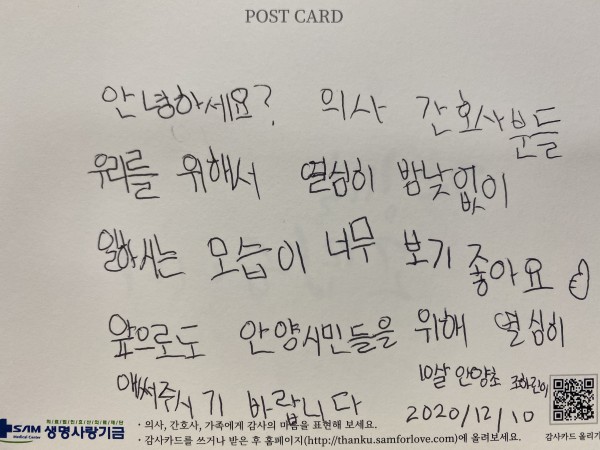 POST CARD
안녕하세요? 의사 간호사분들
우리를 위해서 열심히 밤낮없이
일하시는 모습이 너무 보기 좋아요
앞으로도 안양시민들을 위해 열심히
애써주시기 바랍니다
10살 안양초 조하린이
2020/12/10
의료법인효산의료재단
SAM 생명사랑기금
Medical Center
· 의사, 간호사, 가족에게 감사의 마음을 표현해 보세요.
· 감사카드를 쓰거나 받은 후 홈페이지(http://thanku.samforlove.com)에 올려보세요.
감사카드 올리기